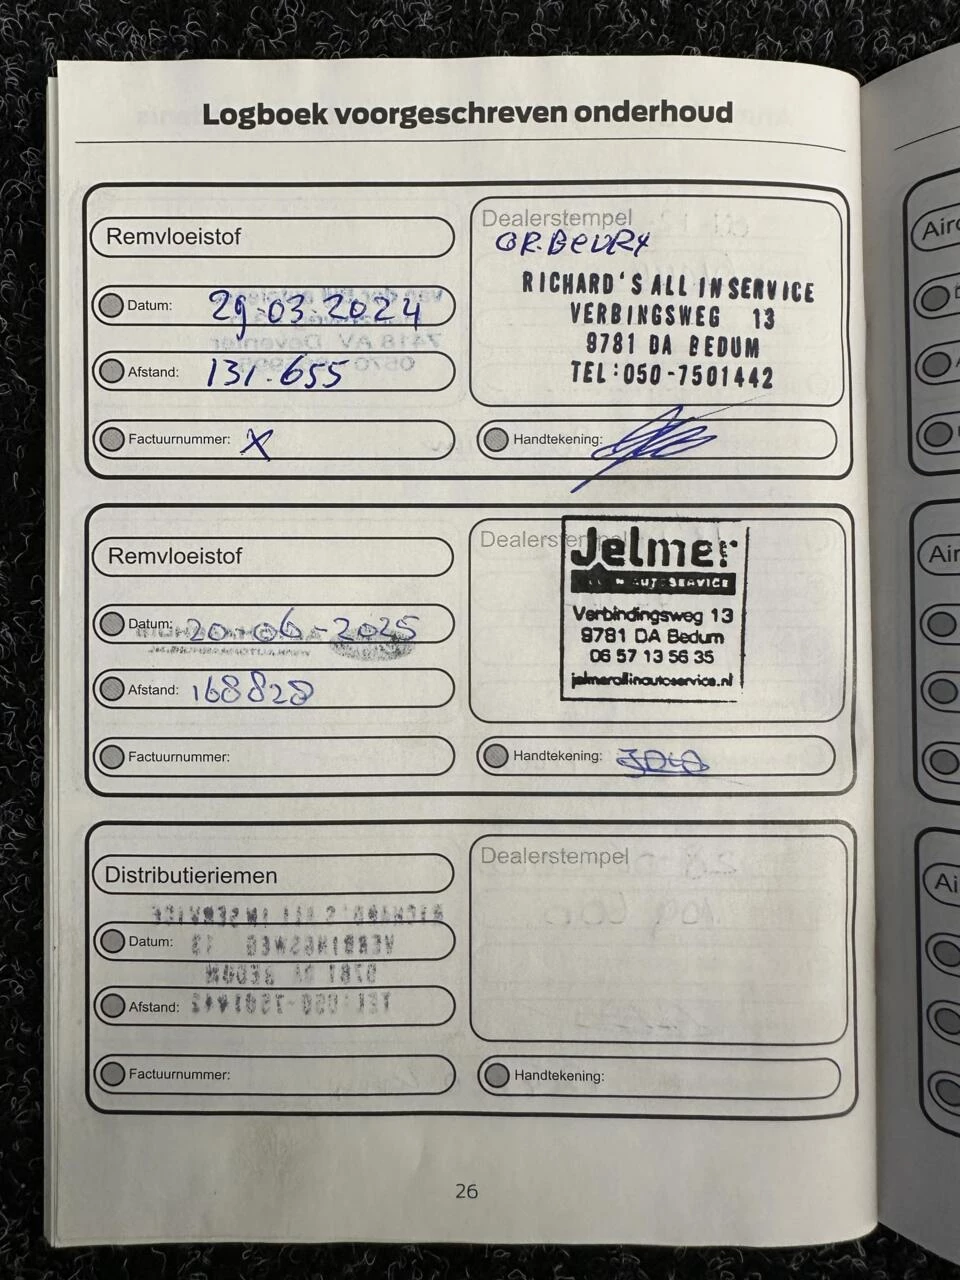 Logboek voorgeschreven onderhoud
Remvloeistof
Datum: 29-03-2024
Afstand: 131.655
Factuurnummer: X
Dealerstempel
RICHARD'S ALL IN SERVICE
VERBINGSWEG 13
9781 DA BEDUM
TEL:050-7501442
Handtekening:
Remvloeistof
Datum: 20-06-2025
Afstand: 168828
Factuurnummer:
Dealerstempel
Jelmer
AUTOSERVICE
Verbindingsweg 13
9781 DA Bedum
06 57 13 56 35
jelmerallinautoservice.nl
Handtekening:
Distributieriemen
Datum:
Afstand:
Factuurnummer:
Dealerstempel
Handtekening:
26
Airc
Air
Ai